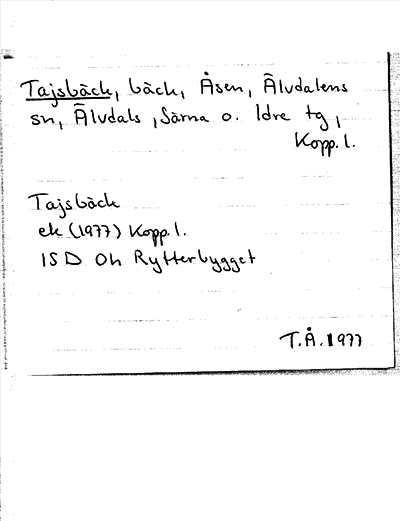 Tajsbäck, bäck, Åsen, Älvdalens
sn, Älvdals, Särna o. Idre tg,
Kopp. l.
Tajsbäck
ek (1977) Kopp. l.
15D 0h Rytterbygget
T.Å. 1977